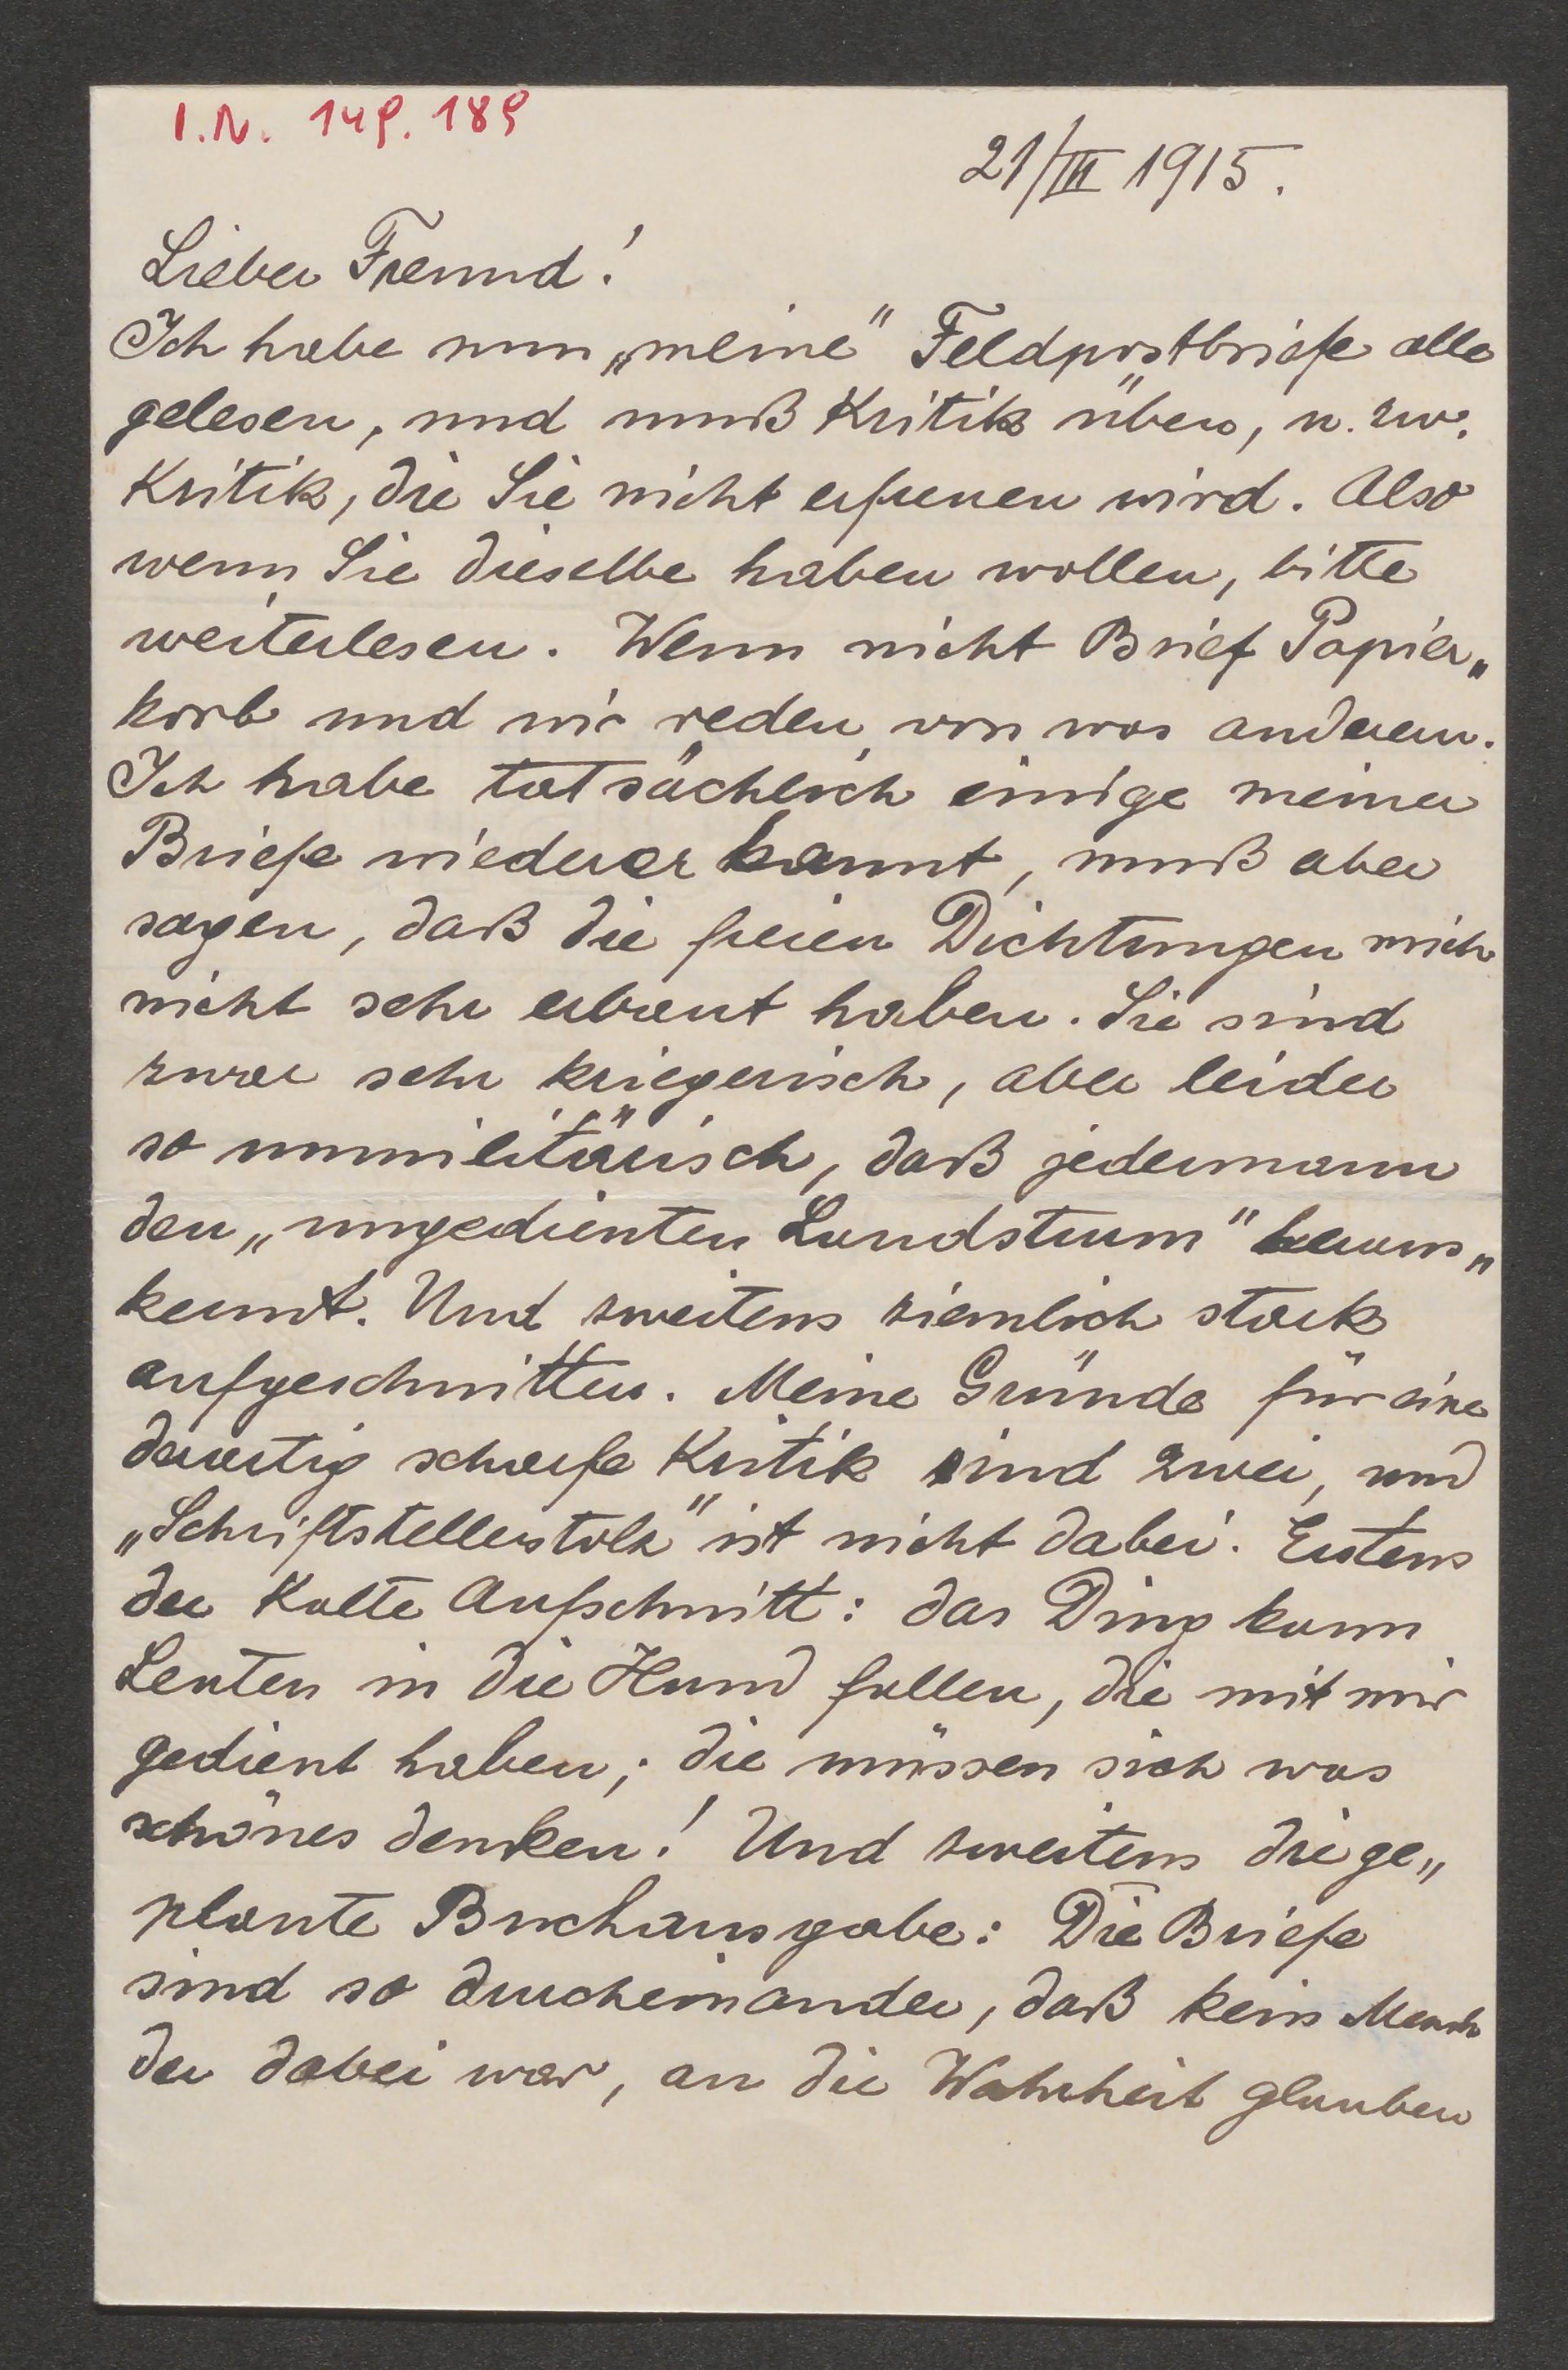 I.N. 149.189
21/III 1915.
Lieber Freund!
Ich habe nun „meine" Feldpostbriefe alle
gelesen, und muß Kritik üben, u. zw.
Kritik, die Sie nicht erfreuen wird. Also
wenn Sie dieselbe haben wollen, bitte
weiterlesen. Wenn nicht Brief Papier„
korb und wir reden von was anderem.
Ich habe tatsächlich einige meiner
Briefe wiedererkannt, muß aber
sagen, daß die freien Dichtungen mich
nicht sehr erbaut haben. Sie sind
zwar sehr kriegerisch, aber leider
so unmilitärisch, daß jedermann
den „ungedienten Landsturm" heraus„
kennt. Und zweitens ziemlich stark
aufgeschnitten. Meine Gründe für eine
derartig scharfe Kritik sind zwei, und
„Schriftstellerstolz" ist nicht dabei. Erstens
der Kalte Aufschnitt: das Ding kann
Leuten in die Hand fallen, die mit mir
gedient haben; die müssen sich was
schönes denken! Und zweitens die ge„
plante Buchausgabe: Die Briefe
sind so durcheinander, daß kein Mensch
der dabei war, an die Wahrheit glauben